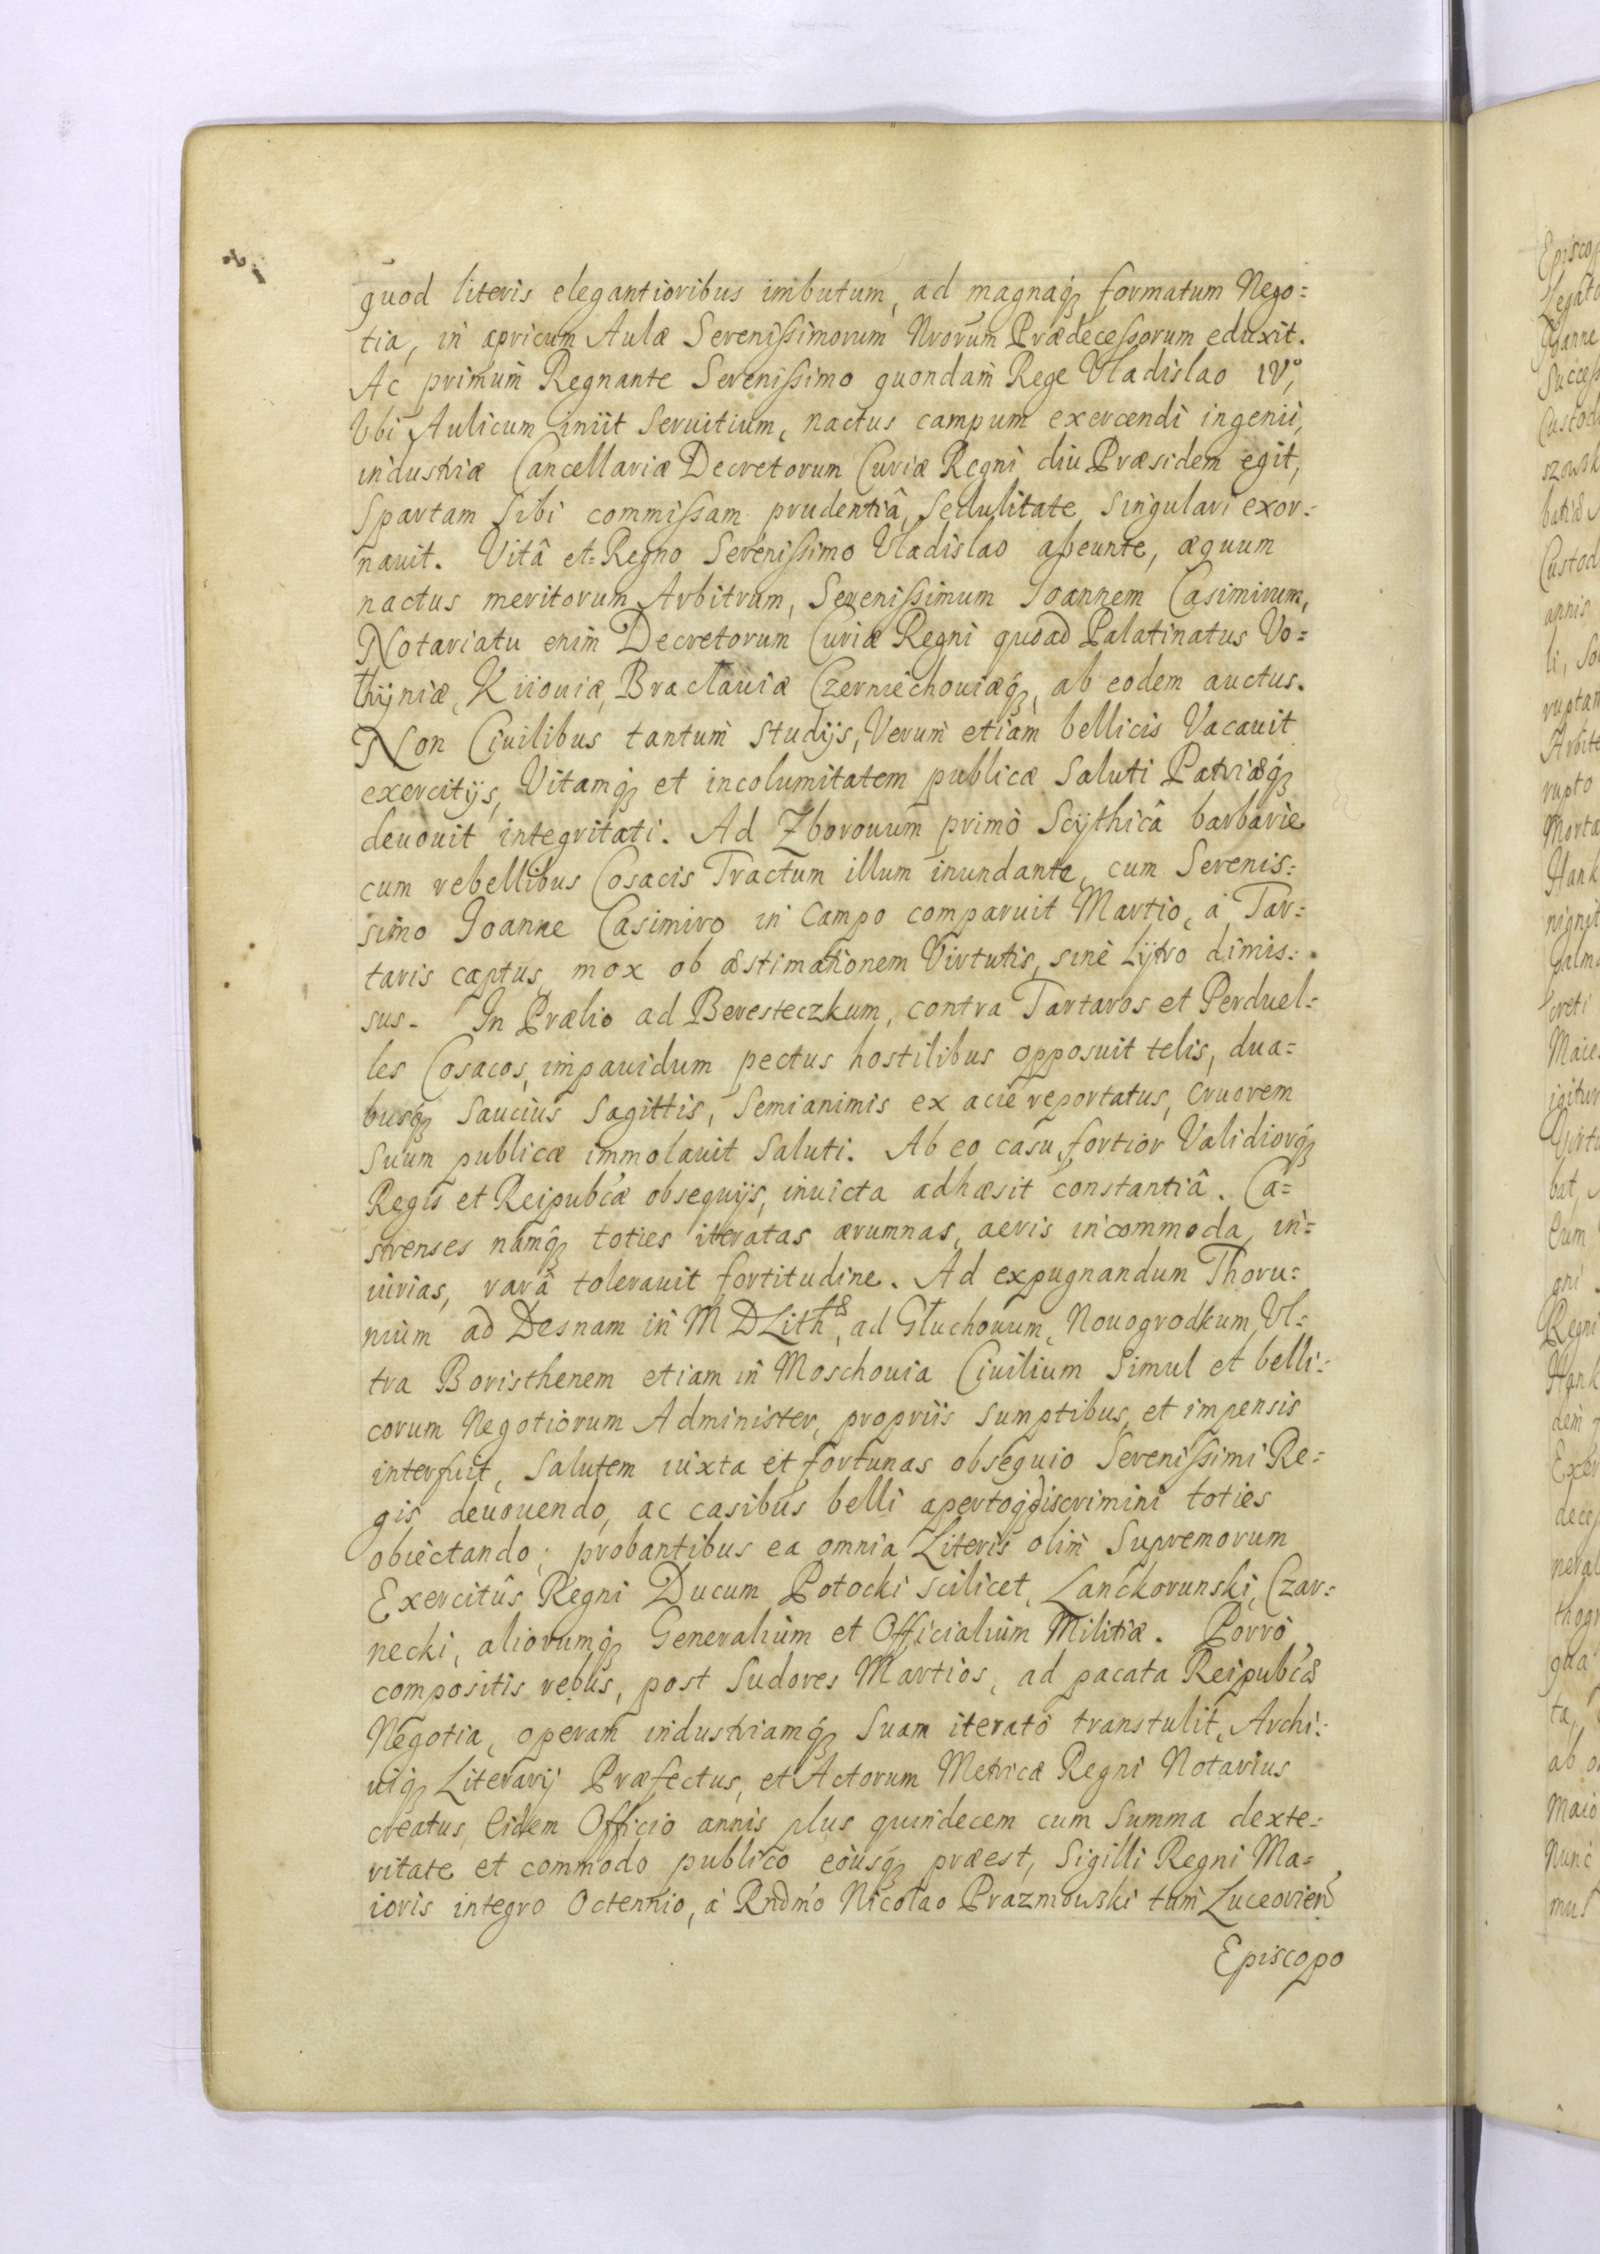 quod literis elegantioribus imbutum, ad magnaq́ꝫ formatum Nego=
tia, in apricum Aulæ Serenissimorum Nrorum Prædecessorum eduxit.
Ac primum Regnante Serenissimo quondam Rege Vladislao IV°,
Vbi Aulicum iniit Seruitium, nactus campum exercendi ingenii,
industriæ Cancellariæ Decretorum Curiæ Regni diu Præsidem egit,
Spartam Sibi commissam prudentiâ, Sedulitate Singulari exor=
nauit. Vitâ et Regno Serenissimo Vladislao abeunte, æquum
nactus meritorum Arbitrum, Serenissimum Joannem Casimirum,
Notariatu enim Decretorum Curiæ Regni quoad Palatinatus Vo=
łhyniæ, Kiiouiæ, Bracłauiæ Czerniechouiæq́ꝫ, ab eodem auctus.
Non Ciuilibus tantum studijs, Verum etiam bellicis Vacauit
exercitijs, Vitamq́ꝫ et incolumitatem publicæ Saluti Patriæq́ꝫ
deuouit integritati. Ad Zborouum primò Scythicâ barbarie
cum rebellibus Cosacis Tractum illum inundante, cum Serenis=
simo Joanne Casimiro in Campo comparuit Martio, à Tar=
taris captus, mox ob æstimationem Virtutis, sine Lytro dimis=
sus. In Prælio ad Beresteczkum, contra Tartaros et Perduel=
les Cosacos, impauidum pectus hostilibus opposuit telis, dua=
busq́ꝫ Saucius Sagittis, Semianimis ex acie reportatus, cruorem
Suum publicæ immolauit Saluti. Ab eo casu, fortior Validiorq́ꝫ
Regis et Reipub́cæ obsequijs, inuicta adhæsit constantiâ. Ca=
strenses namq́ꝫ toties iteratas ærumnas, aeris incommoda, in=
iurias, rarâ tolerauit fortitudine. Ad expugnandum Thoru=
nium ad Desnam in M D Lithæ, ad Głuchouum, Nouogrodkum, Vl=
tra Boristhenem etiam in Moschouia Ciuilium Simul et belli=
corum Negotiorum Administer, propriis Sumptibus, et impensis
interfuit, Salutem iuxta et fortunas obsequio Serenissimi Re=
gis deuouendo, ac casibus belli apertoq́ discrimini toties
obiectando; probantibus ea omnia Literis olim Supremorum
Exercitûs Regni Ducum Potocki scilicet, Lanckorunski, Czar=
necki, aliorumq́ꝫ Generalium et Officialium Militiæ. Porrò
compositis rebus, post Sudores Martios, ad pacata Reipub́cæ
Negotia, operam industriamq́ꝫ Suam iterato transtulit, Archi=
uiq́ꝫ Literarij Præfectus, et Actorum Metricæ Regni Notarius
creatus, Eidem Officio annis plus quindecem cum Summa dexte=
ritate et commodo publico eòusq́ꝫ præest, Sigilli Regni Ma=
ioris integro Octennio, à Rndmo Nicolao Prazmowski tum Luceorien
Episcopo